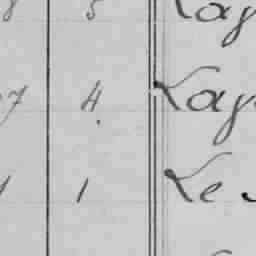 8 5 Lay
7 4 Lay
1 1 Le